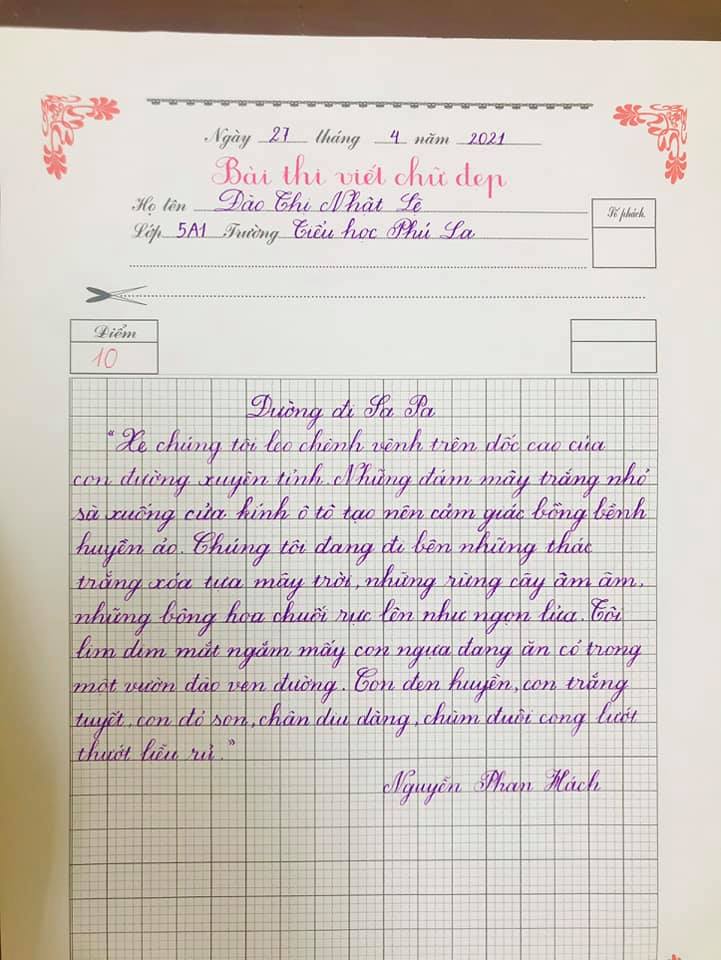 Ngày 27 tháng 4 năm 2021
Bài thi viết chữ đẹp
Họ tên Đào Thị Nhật Lệ
Lớp 5A1 Trường Tiểu học Phú La
Số phách
Điểm
10
Đường đi Sa Pa
"Xe chúng tôi leo chênh vênh trên dốc cao của
con đường xuyên tỉnh. Những đám mây trắng nhỏ
sà xuống cửa kính ô tô tạo nên cảm giác bồng bềnh
huyền ảo. Chúng tôi đang đi bên những thác
trắng xóa tựa mây trời, những rừng cây âm âm,
những bông hoa chuối rực lên như ngọn lửa. Tôi
lim dim mắt ngắm mấy con ngựa đang ăn cỏ trong
một vườn đào ven đường. Con đen huyền, con trắng
tuyết, con đỏ son, chân dịu dàng, chùm đuôi cong lướt
thướt liễu rủ."
Nguyễn Phan Hách